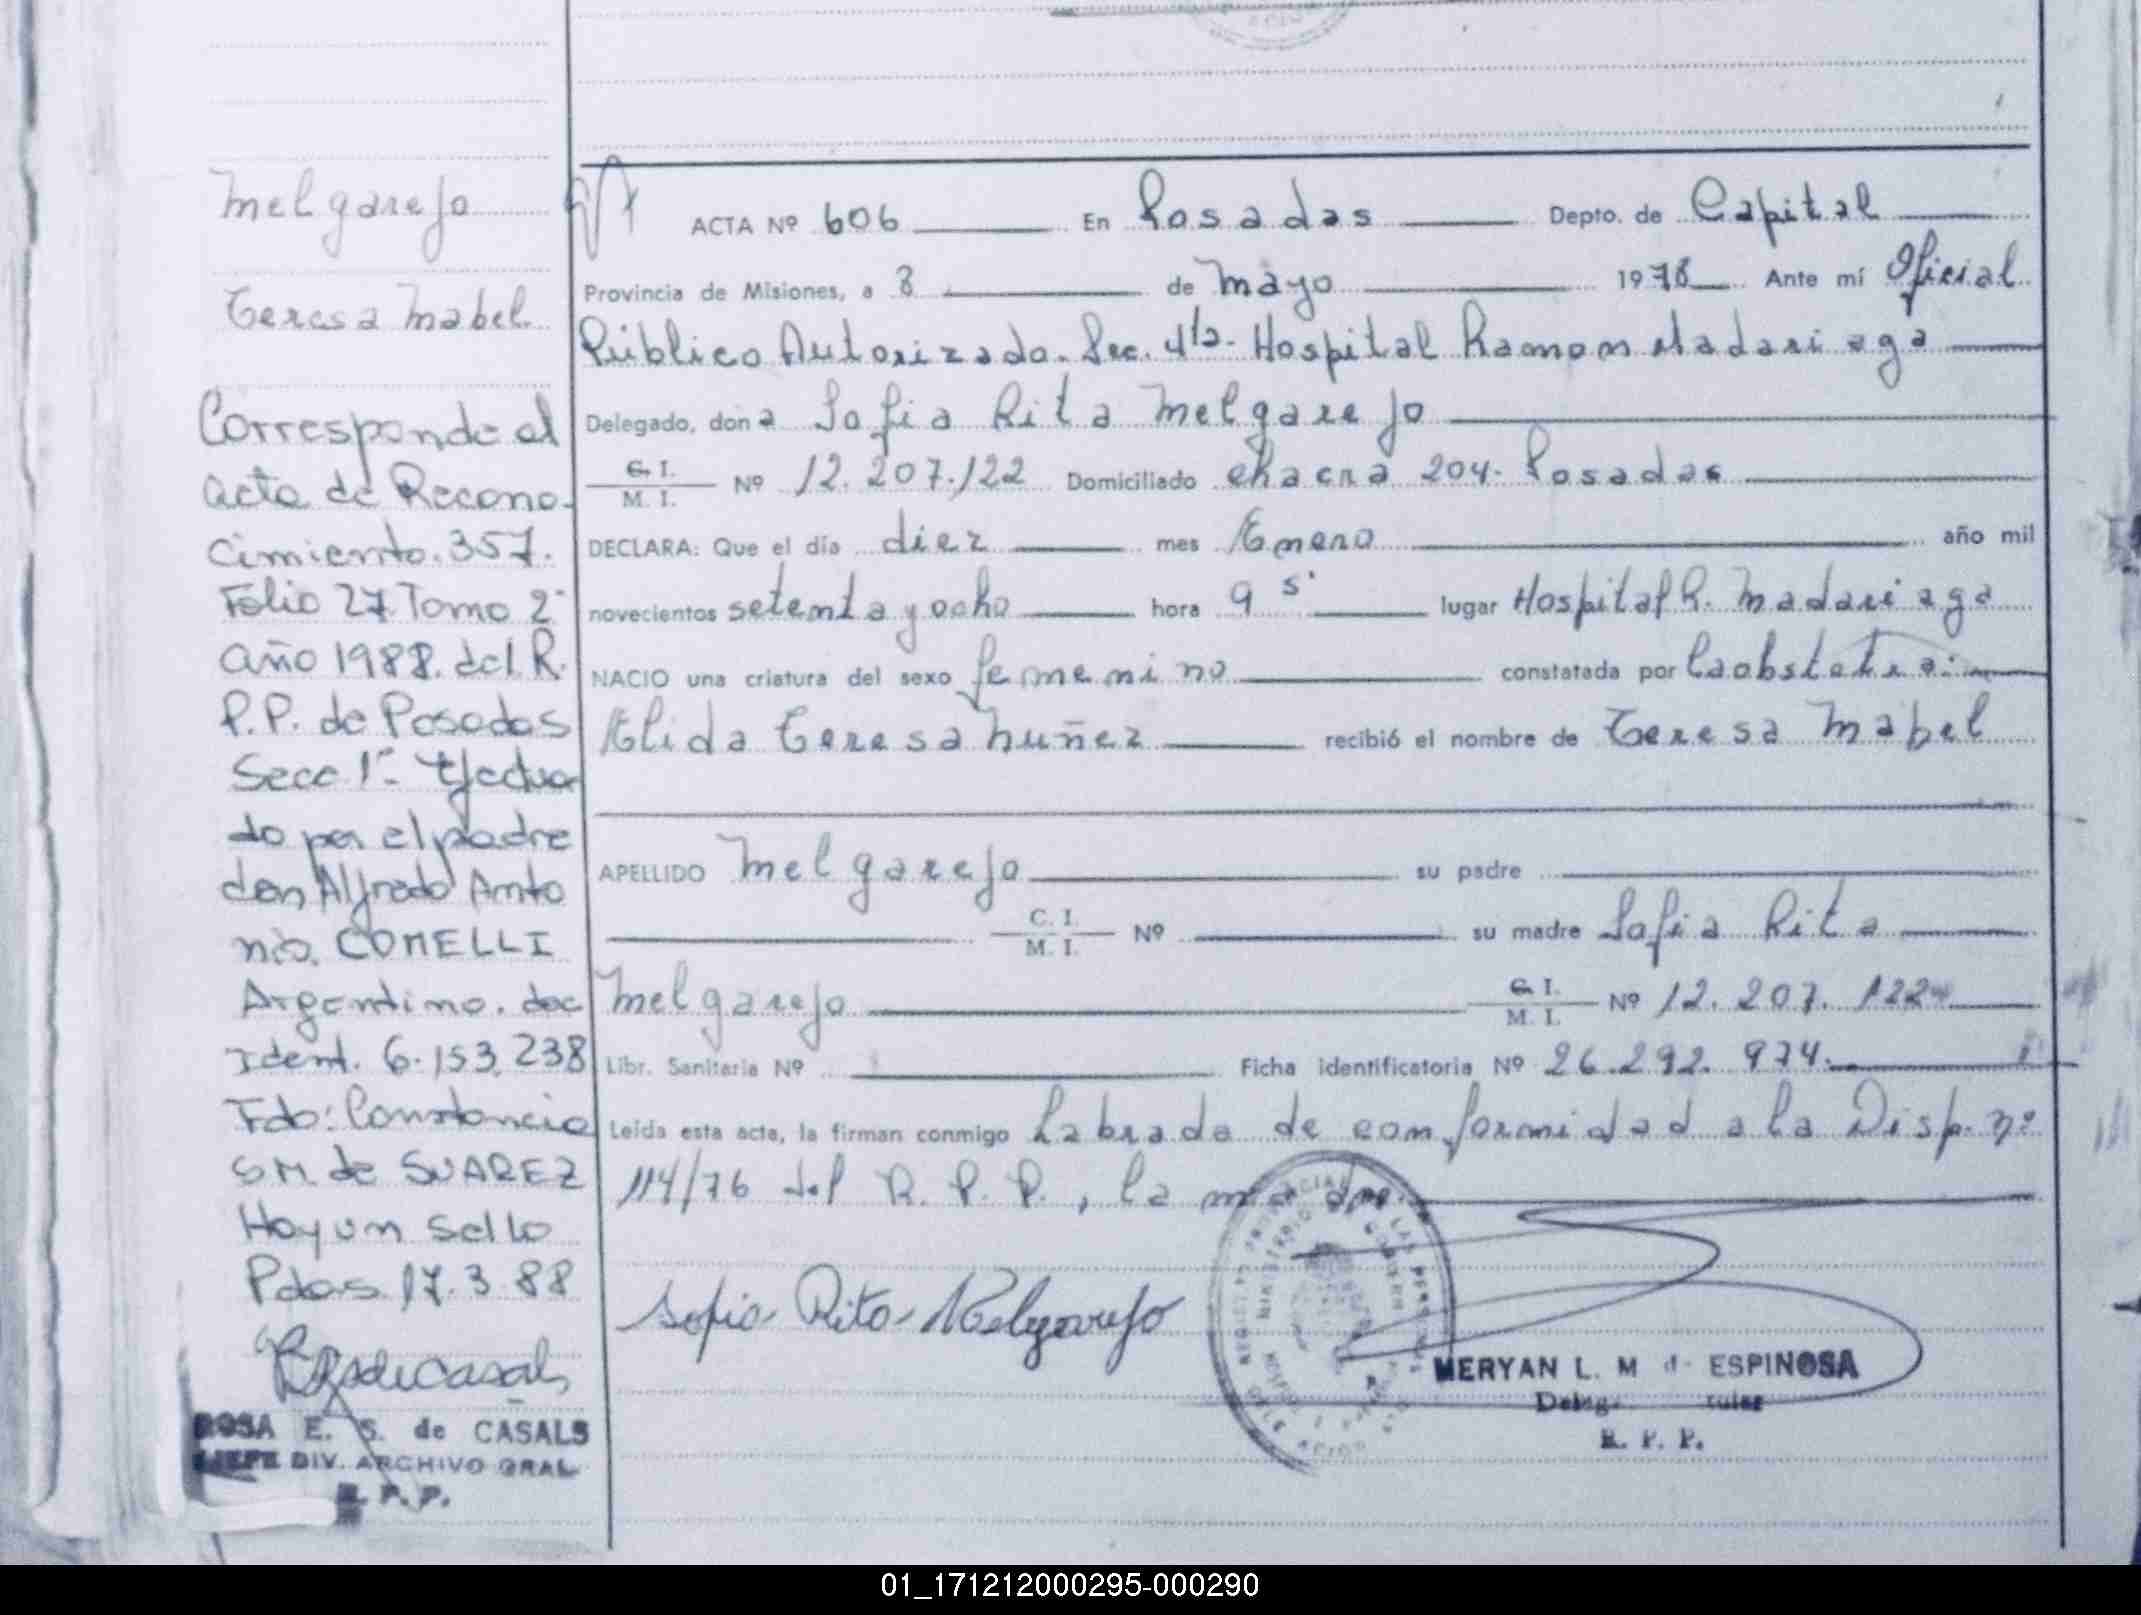 Melgarejo
Teresa Mabel
Corresponde al
acta de Recono-
cimiento. 357.
Folio 27. Tomo 2°
año 1988. del R.
P.P. de Posadas
Secc 1ª Efectua
do por el padre
don Alfredo Anto
nio. COMELLI
Argentino. doc
ident. 6.153.238
Fdo: Constancia
S.M. de SUAREZ
Hay un sello
Pdas. 17.3.88
ROSA E. S. de CASALS
JEFE DIV. ARCHIVO GRAL
R. P. P.
ACTA Nº 606 En Posadas Depto. de Capital
Provincia de Misiones, a 8 de Mayo 1978 Ante mí Oficial
Público Autorizado. Sec. 4ta. Hospital Ramon Madariaga
Delegado, don a Sofia Rita Melgarejo
C. I. M. I. Nº 12.207.122 Domiciliado chacra 204. Posadas
DECLARA: Que el día diez mes Enero año mil
novecientos setenta y ocho hora 9 s. lugar Hospital R. Madariaga
NACIO una criatura del sexo femenino constatada por la obstetra:
Elida Teresa Nuñez recibió el nombre de Teresa Mabel
APELLIDO Melgarejo su padre
C. I. M. I. Nº su madre Sofia Rita
Melgarejo C. I. M. I. Nº 12.207.122
Libr. Sanitaria Nº Ficha identificatoria Nº 26.292.974.
Leída esta acta, la firman conmigo Labrada de conformidad a la Disp. nº
114/76 del R. P. P., la madre
Sofia Rita Melgarejo
MERYAN L. M d. ESPINOSA
R. P. P.
01_171212000295-000290